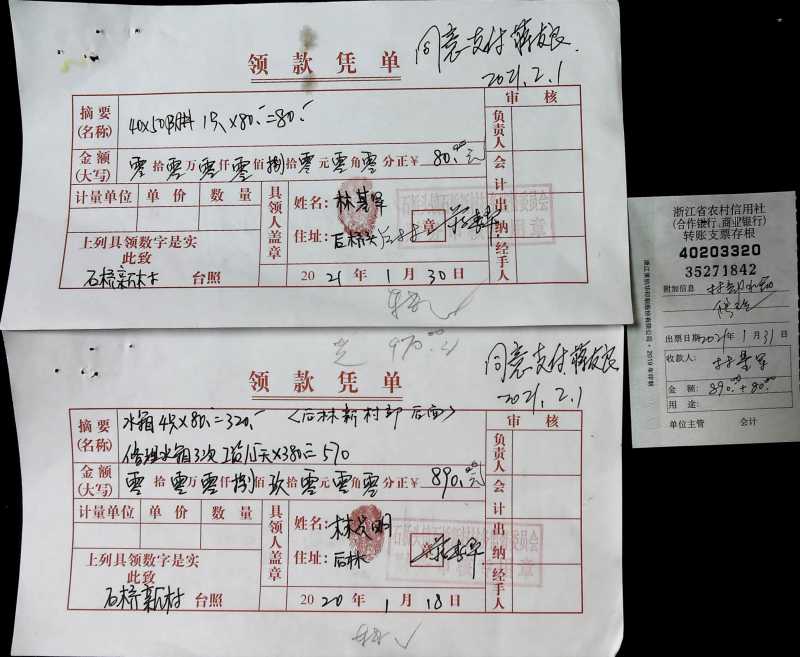 领款凭单
同意支付
2021.2.1
摘要
(名称)
1只×80.-=80.-
审核
负责人
金额
(大写)
零拾零万零仟零佰捌拾零元零角零分正¥80.00元
会计
计量单位 单价 数量
具领人盖章
姓名:林其军
住址:后林
章
出纳
上列具领数字是实
此致
石桥新村 台照
2021年1月30日
经手人
970.00元
领款凭单
同意支付
2021.2.1
摘要
(名称)
水箱4只×80.-=320.-
〈后林新村部后面〉
修理水箱3次 工资1½天×380=570
审核
负责人
金额
(大写)
零拾零万零仟捌佰玖拾零元零角零分正¥890.00元
会计
计量单位 单价 数量
具领人盖章
姓名:林发明
住址:后林
章
出纳
上列具领数字是实
此致
石桥新村 台照
2020年1月18日
经手人
浙江省农村信用社
(合作银行、商业银行)
转账支票存根
40203320
35271842
附加信息
出票日期2021年1月31日
收款人:
金额:890.00+80.00
用途:
单位主管 会计